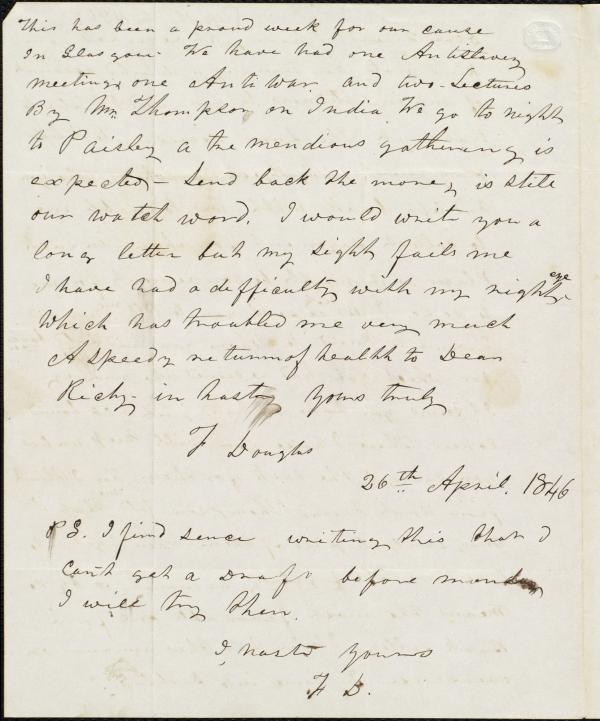 This has been a proud week for our cause
In Glasgow. We have had one Antislavery
meeting one Anti war. and two Lectures
By Mr Thompson on India. We go to night
to Paisley a tremendious gathering is
expected – Send back the money is still
our watch word. I would write you a
long letter but my sight fails me
I have had a difficulty with my right eye
Which has troubled me very much
A speedy return of health to Dear
Richy – in haste yours truly
F Douglas
26th April. 1846
P.S. I find sence writing this that I
cant get a Draft before monday
I will try then.
I, haste yours
F D.